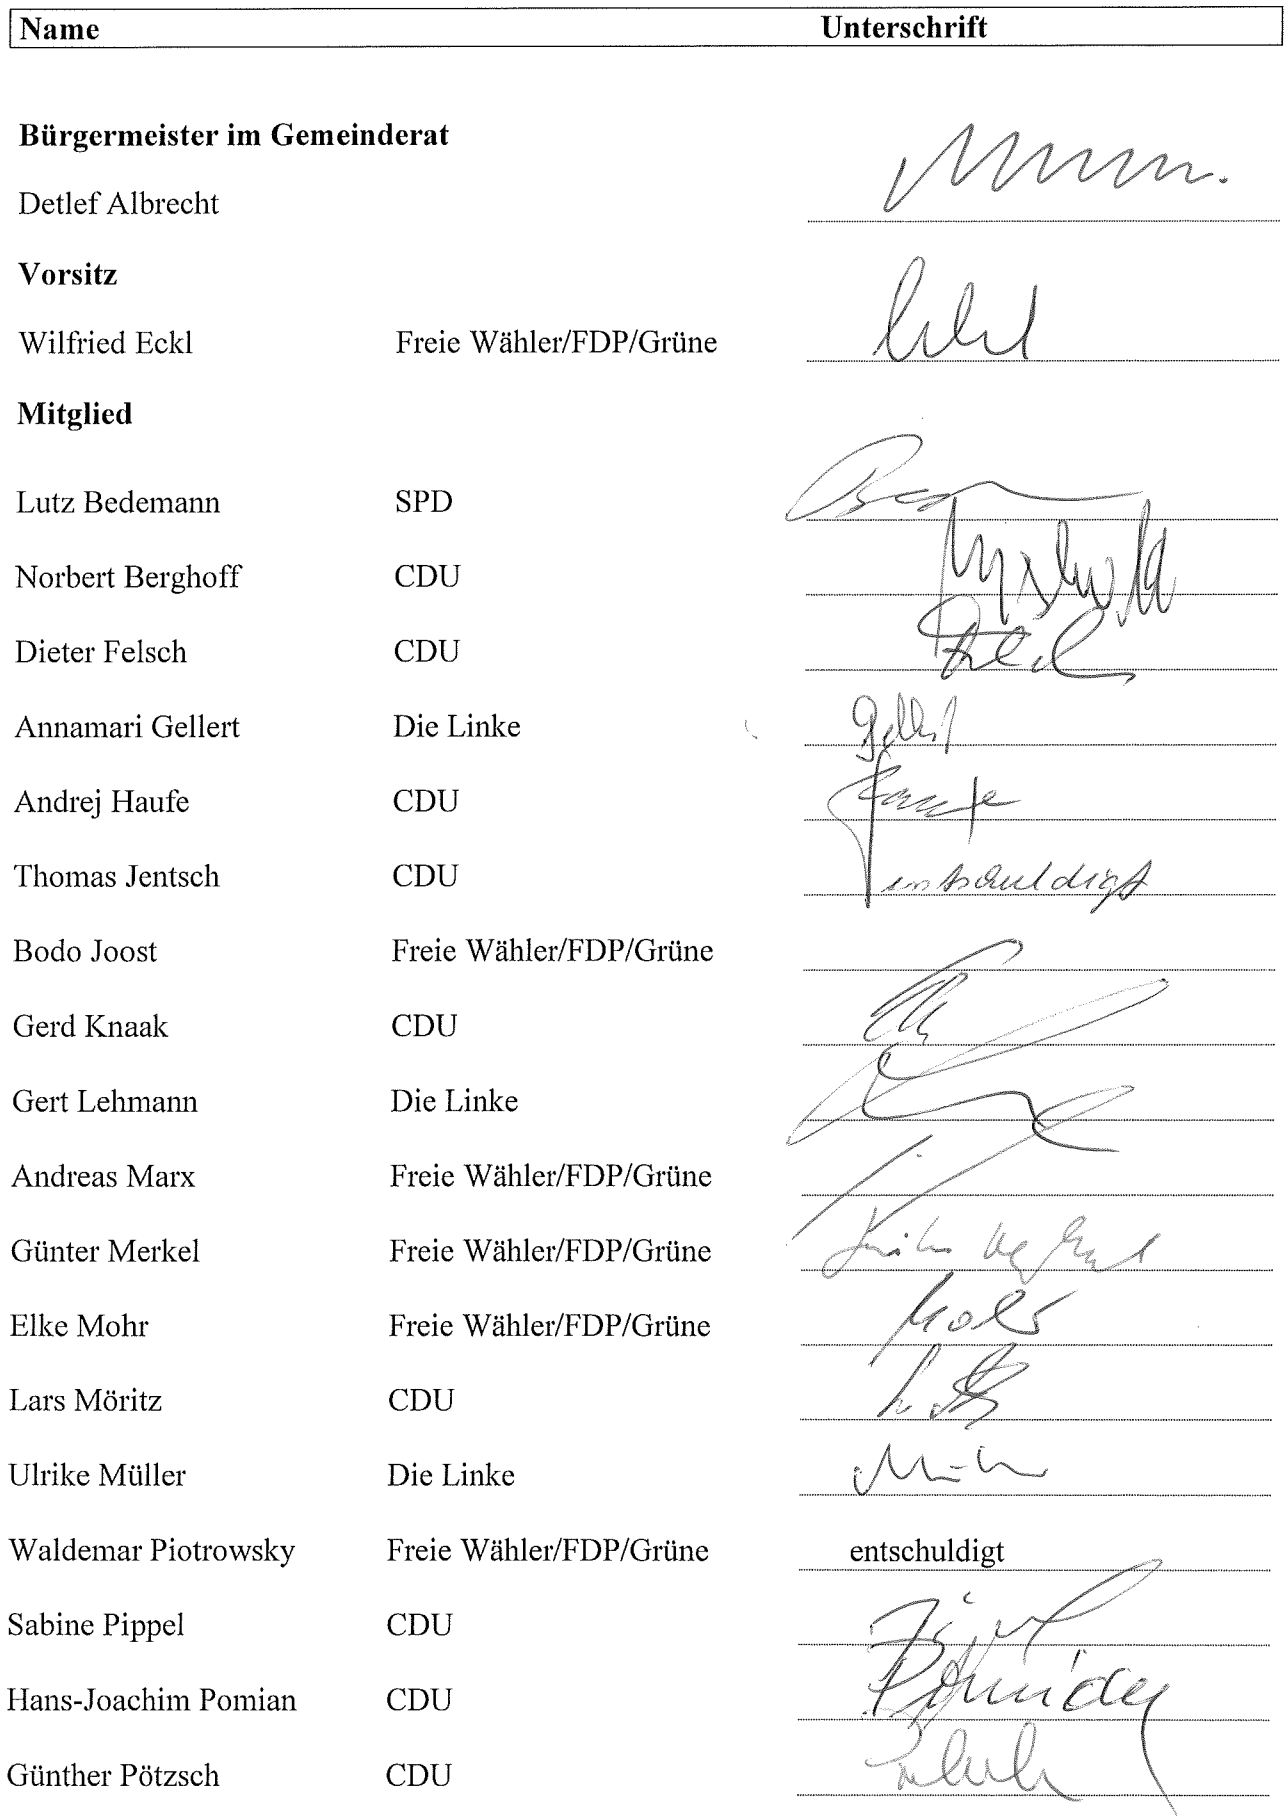 Name Unterschrift
Bürgermeister im Gemeinderat
Detlef Albrecht
Vorsitz
Wilfried Eckl Freie Wähler/FDP/Grüne
Mitglied
Lutz Bedemann SPD
Norbert Berghoff CDU
Dieter Felsch CDU
Annamari Gellert Die Linke Gellert
Andrej Haufe CDU Haufe
Thomas Jentsch CDU entschuldigt
Bodo Joost Freie Wähler/FDP/Grüne
Gerd Knaak CDU
Gert Lehmann Die Linke
Andreas Marx Freie Wähler/FDP/Grüne
Günter Merkel Freie Wähler/FDP/Grüne
Elke Mohr Freie Wähler/FDP/Grüne Mohr
Lars Möritz CDU
Ulrike Müller Die Linke
Waldemar Piotrowsky Freie Wähler/FDP/Grüne entschuldigt
Sabine Pippel CDU
Hans-Joachim Pomian CDU
Günther Pötzsch CDU